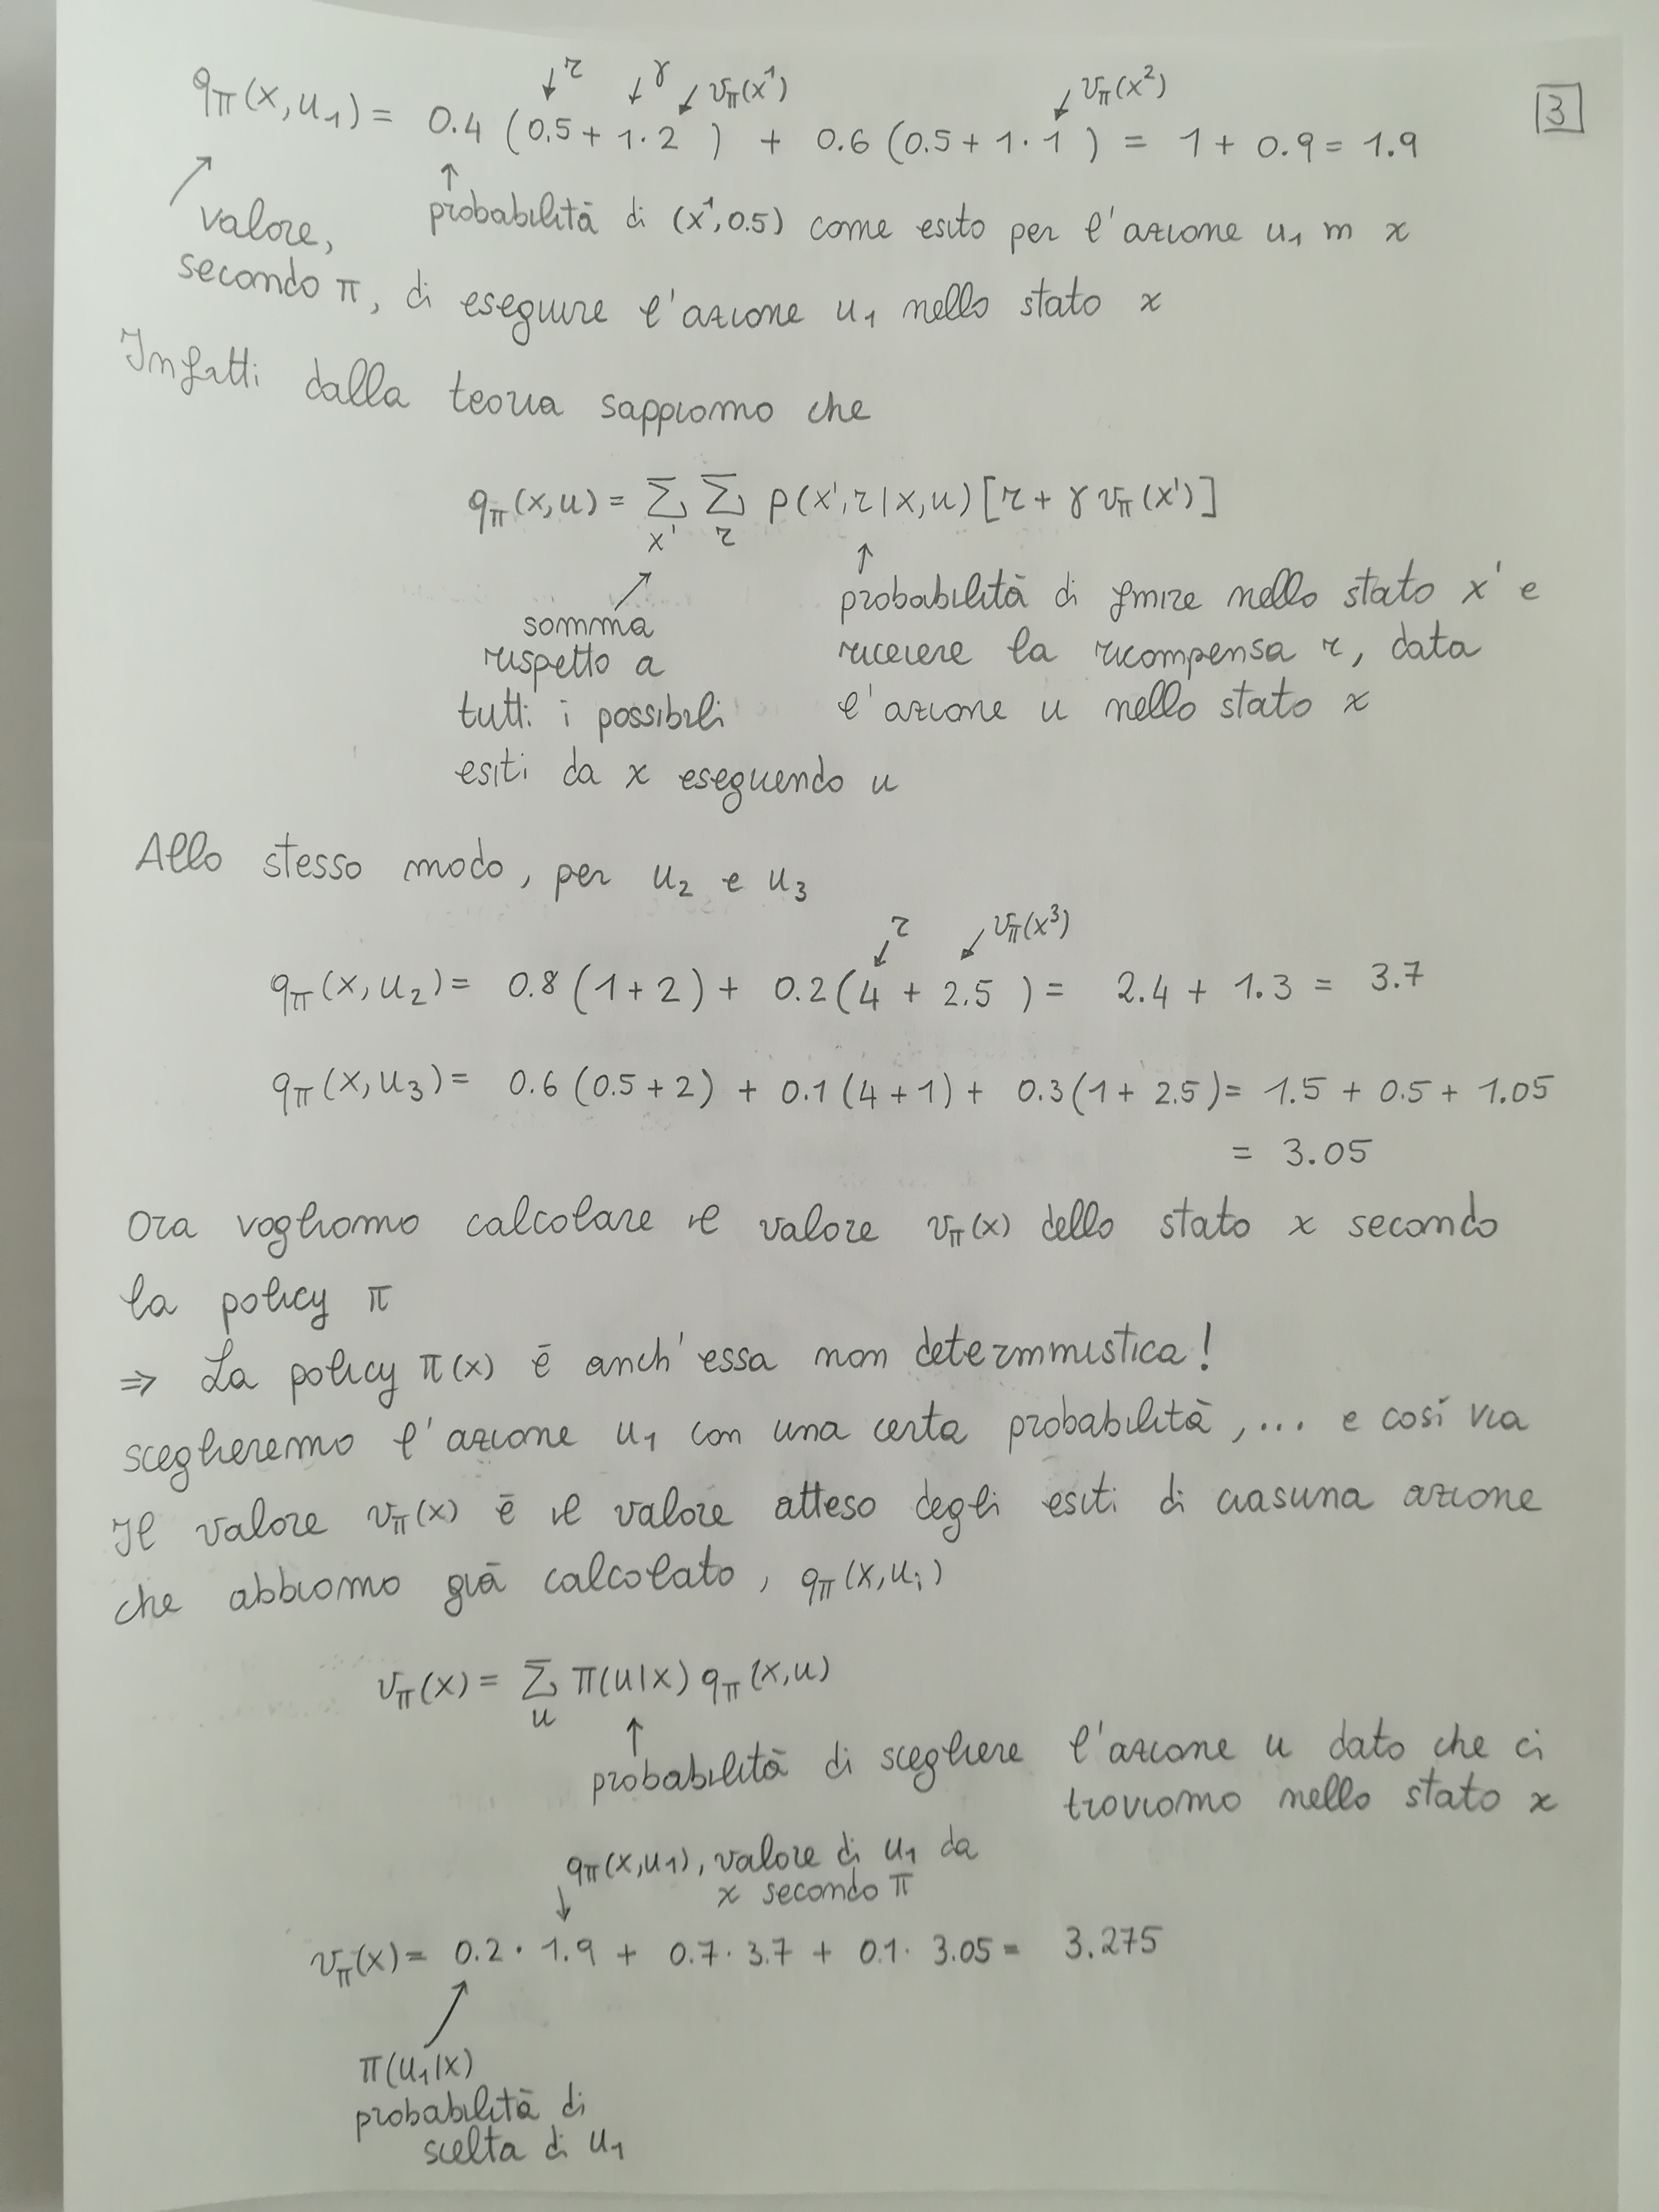 3
↓ r ↓ γ ↙ vπ(x¹) ↙ vπ(x²)
qπ(x,u₁) = 0.4 (0.5 + 1·2 ) + 0.6 (0.5 + 1·1 ) = 1 + 0.9 = 1.9
↗ valore, secondo π, di eseguire l'azione u₁ nello stato x
↑ probabilità di (x¹,0.5) come esito per l'azione u₁ in x
Infatti dalla teoria sappiamo che
qπ(x,u) = Σx' Σr p(x',r|x,u) [r + γ vπ(x')]
↗ somma
rispetto a
tutti i possibili
esiti da x eseguendo u
↑ probabilità di finire nello stato x' e
ricevere la ricompensa r, data
l'azione u nello stato x
Allo stesso modo, per u₂ e u₃
↙ r ↙ vπ(x³)
qπ(x,u₂) = 0.8 (1+2) + 0.2 (4 + 2.5 ) = 2.4 + 1.3 = 3.7
qπ(x,u₃) = 0.6 (0.5+2) + 0.1 (4+1) + 0.3 (1 + 2.5) = 1.5 + 0.5 + 1.05
= 3.05
Ora vogliamo calcolare il valore vπ(x) dello stato x secondo
la policy π
⇒ La policy π(x) è anch'essa non deterministica!
sceglieremo l'azione u₁ con una certa probabilità,... e così via
Il valore vπ(x) è il valore atteso degli esiti di ciasuna azione
che abbiamo già calcolato, qπ(x,uᵢ)
vπ(x) = Σu π(u|x) qπ(x,u)
↑ probabilità di scegliere l'azione u dato che ci
troviamo nello stato x
qπ(x,u₁), valore di u₁ da
↓ x secondo π
vπ(x) = 0.2 · 1.9 + 0.7 · 3.7 + 0.1 · 3.05 = 3.275
↗
π(u₁|x)
probabilità di
scelta di u₁